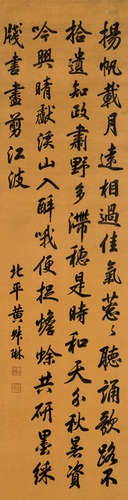 揚帆載月遠相過佳氣葱々聽誦歌路不
拾遺知政肅野多滯穗是時和天分秋暑資
吟興晴獻溪山入醉哦便捉蟾蜍共研墨綵
牋書盡剪江波
北平黃叔琳